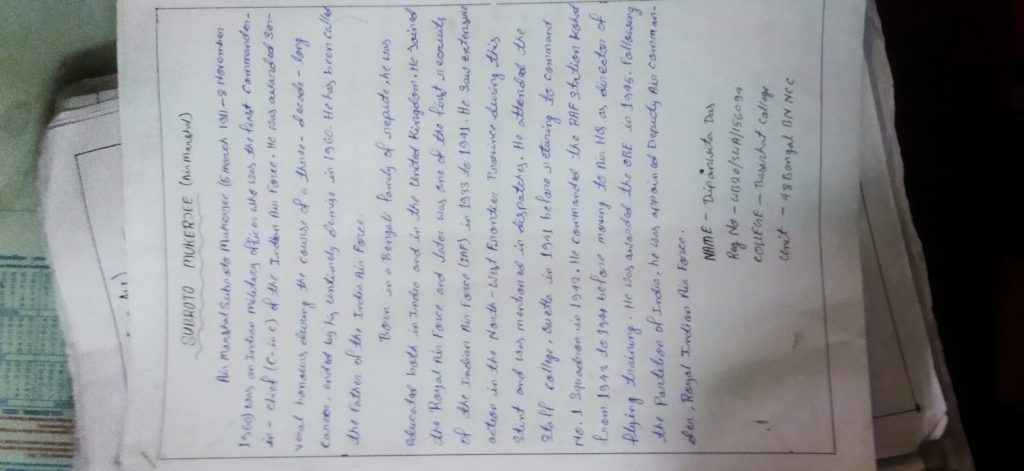 SUBROTO MUKERJEE (Air marshal)
Air Marshal Subroto Mukerjee (5 march 1911-8 November
1960) was an Indian military officer who was the first Commander-
in-chief (C-in-c) of the Indian Air Force. He was awarded Sev-
eral honours during the course of a three-decade-long
career, ended by his untimely demise in 1960. He has been called
the Father of the India Air Force.
Born in a Bengali family of repute, he was
educated both in India and in the United Kingdom. He Joined
the Royal Air Force and later was one of the first recruits
of the Indian Air Force (IAF) in 1933 to 1941. He saw extensive
action in the North-West Frontier Province during this
Stent and was mentioned in dispatches. He attended the
Staff College, Quetta in 1941 before returning to command
No. 1 Squadron in 1942. He commanded the RAF Station Kohat
from 1943 to 1944 before moving to Air HQ as director of
flying training. He was awarded the OBE in 1945. Following
the Partition of India, he was appointed Deputy Air comman-
der, Royal Indian Air Force.
NAME - Dipanwita Das
Reg No - WB20/SWA/156094
COLLEGE - Basirhat College
Unit - 48 Bengal BN NCC